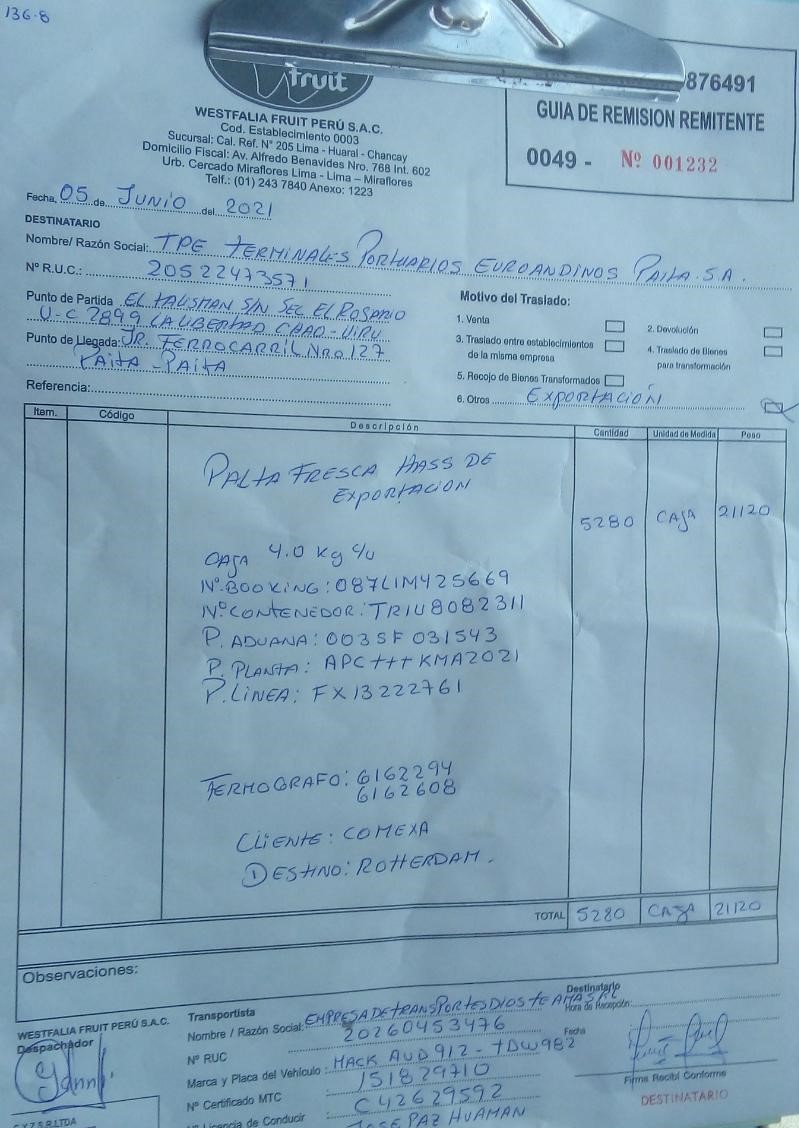 136-8
fruit
WESTFALIA FRUIT PERÚ S.A.C.
Cod. Establecimiento 0003
Sucursal: Cal. Ref. N° 205 Lima - Huaral - Chancay
Domicilio Fiscal: Av. Alfredo Benavides Nro. 768 Int. 602
Urb. Cercado Miraflores Lima - Lima - Miraflores
Telf.: (01) 243 7840 Anexo: 1223
876491
GUIA DE REMISION REMITENTE
0049 - Nº 001232
Fecha, 05 de JUNIO del 2021
DESTINATARIO
Nombre/ Razón Social: TPE TERMINALES PORTUARIOS EUROANDINOS PAITA S.A.
Nº R.U.C.: 20522473571
Punto de Partida EL TALISMAN S/N SEC EL ROSARIO
U-C 7899 LA LIBERTAD CHAO-VIRU
Punto de Llegada: JR. FERROCARRIL Nro 127
PAITA - PAITA
Referencia:
Motivo del Traslado:
1. Venta
2. Devolución
3. Traslado entre establecimientos
de la misma empresa
4. Traslado de Bienes
para transformación
5. Recojo de Bienes Transformados
6. Otros EXPORTACIÓN
Item. Código Descripción Cantidad Unidad de Medida Peso
PALTA FRESCA HASS DE
EXPORTACION
5280 CAJA 21120
CAJA 4.0 Kg c/u
Nº.BOOKING: 087LIM425669
Nº CONTENEDOR: TRIU8082311
P. ADUANA: 003SF031543
P. PLANTA: APC+++KMA2021
P. LINEA: FX13222761
TERMOGRAFO: 6162294
6162608
CLIENTE: COMEXA
DESTINO: ROTTERDAM.
TOTAL 5280 CAJA 21120
Observaciones:
WESTFALIA FRUIT PERÚ S.A.C.
Despachador
Transportista
Nombre / Razón Social: EMPRESA DE TRANSPORTES DIOS TE AMA SRL
Nº RUC 20260453476
Marca y Placa del Vehículo: MACK AUD912 - TDW982
Nº Certificado MTC 151829710
Nº Licencia de Conducir C42629592
JOSE PAZ HUAMAN
Destinatario
Hora de Recepción:
Fecha
Firma Recibí Conforme
DESTINATARIO